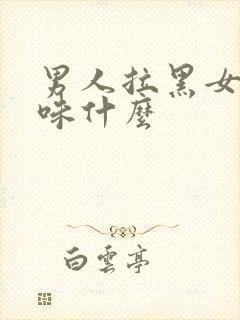 男人拉黑女
味什麼
白雲亭